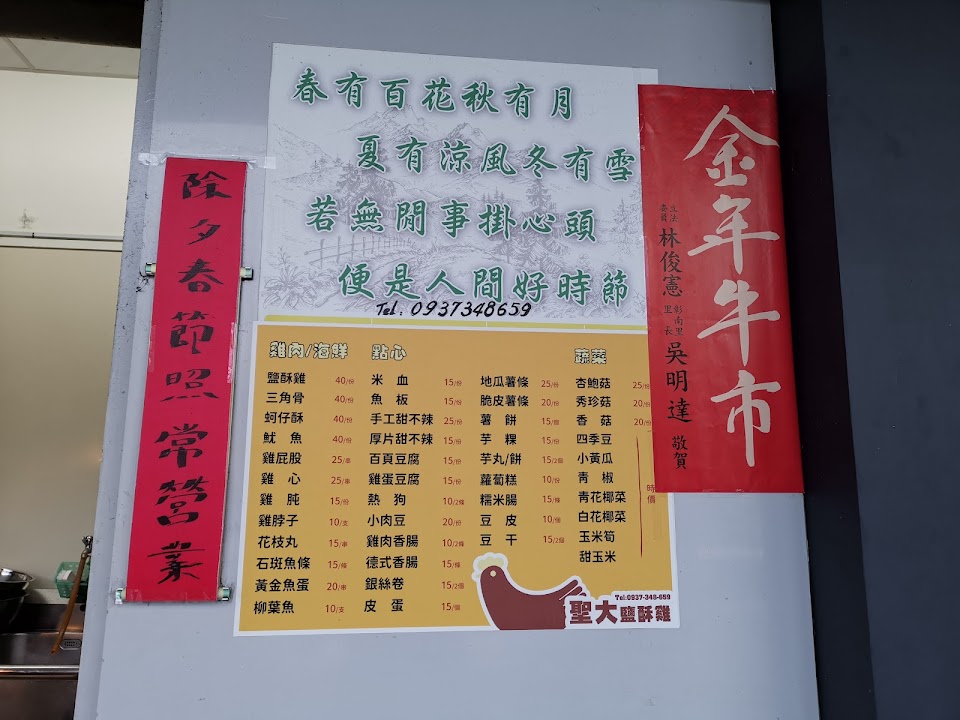 除夕春節照常營業
春有百花秋有月
夏有涼風冬有雪
若無閒事掛心頭
便是人間好時節
Tel：0937348659
金年牛市
立法委員 林俊憲
彰南里里長 吳明達 敬賀
雞肉/海鮮
鹽酥雞 40/份
三角骨 40/份
蚵仔酥 40/份
魷魚 40/份
雞屁股 25/串
雞心 25/串
雞肫 15/份
雞脖子 10/支
花枝丸 15/串
石斑魚條 15/條
黃金魚蛋 20/串
柳葉魚 10/支
點心
米血 15/份
魚板 15/份
手工甜不辣 25/份
厚片甜不辣 15/份
百頁豆腐 15/份
雞蛋豆腐 15/份
熱狗 10/2條
小肉豆 20/份
雞肉香腸 10/2條
德式香腸 15/條
銀絲卷 15/2個
皮蛋 15/個
地瓜薯條 25/份
脆皮薯條 20/份
薯餅 15/個
芋粿 15/份
芋丸/餅 15/2個
蘿蔔糕 10/份
糯米腸 15/條
豆皮 10/個
豆干 15/2個
蔬菜
杏鮑菇 25/份
秀珍菇 20/份
香菇 20/份
四季豆
小黃瓜
青椒
青花椰菜
白花椰菜
玉米筍
甜玉米
時價
Tel:0937-348-659
聖大鹽酥雞